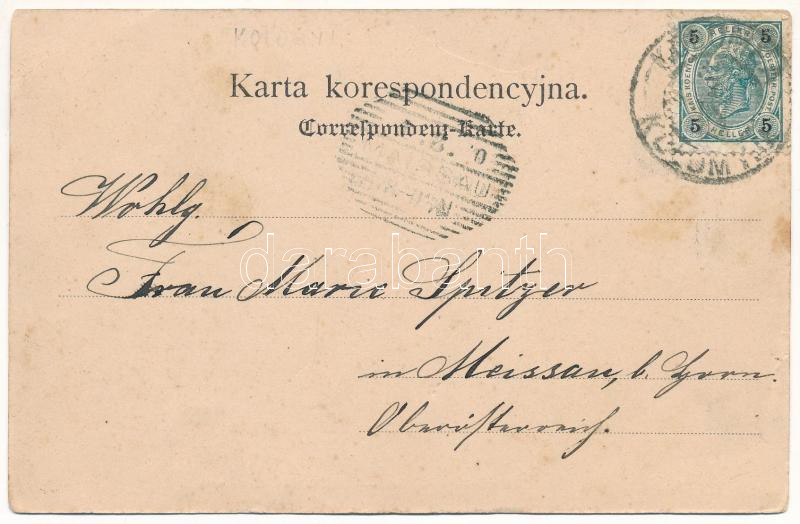 Karta korespondencyjna.
Correspondenz-Karte.
Wohlg.
Frau Marie Spitzer
in Meissau, b. Horn.
Oberösterreich.
5 5
5 5
HELLER
darabanth